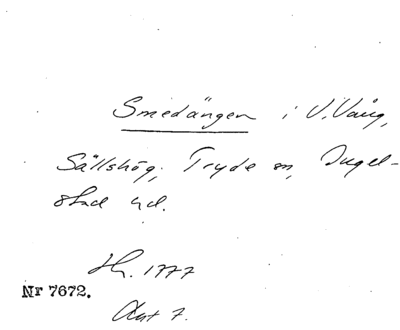 Smedängen i V. Vång,
Sållshög, Tryde sn, Ingel-
stad hd.
Hr. 1777
Nr 7672.
Akt 7.